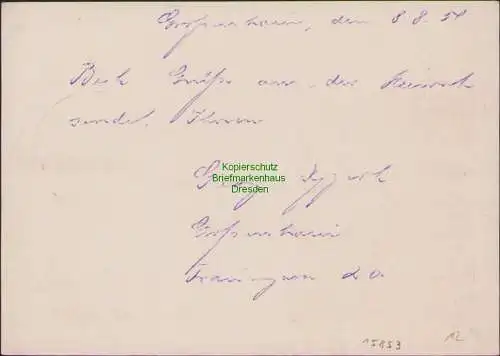 Großenhain, den 8.8.54
Beste Grüße aus der Heimat
sendet Ihnen
Kopierschutz
Briefmarkenhaus
Dresden
Großenhain
15853 12